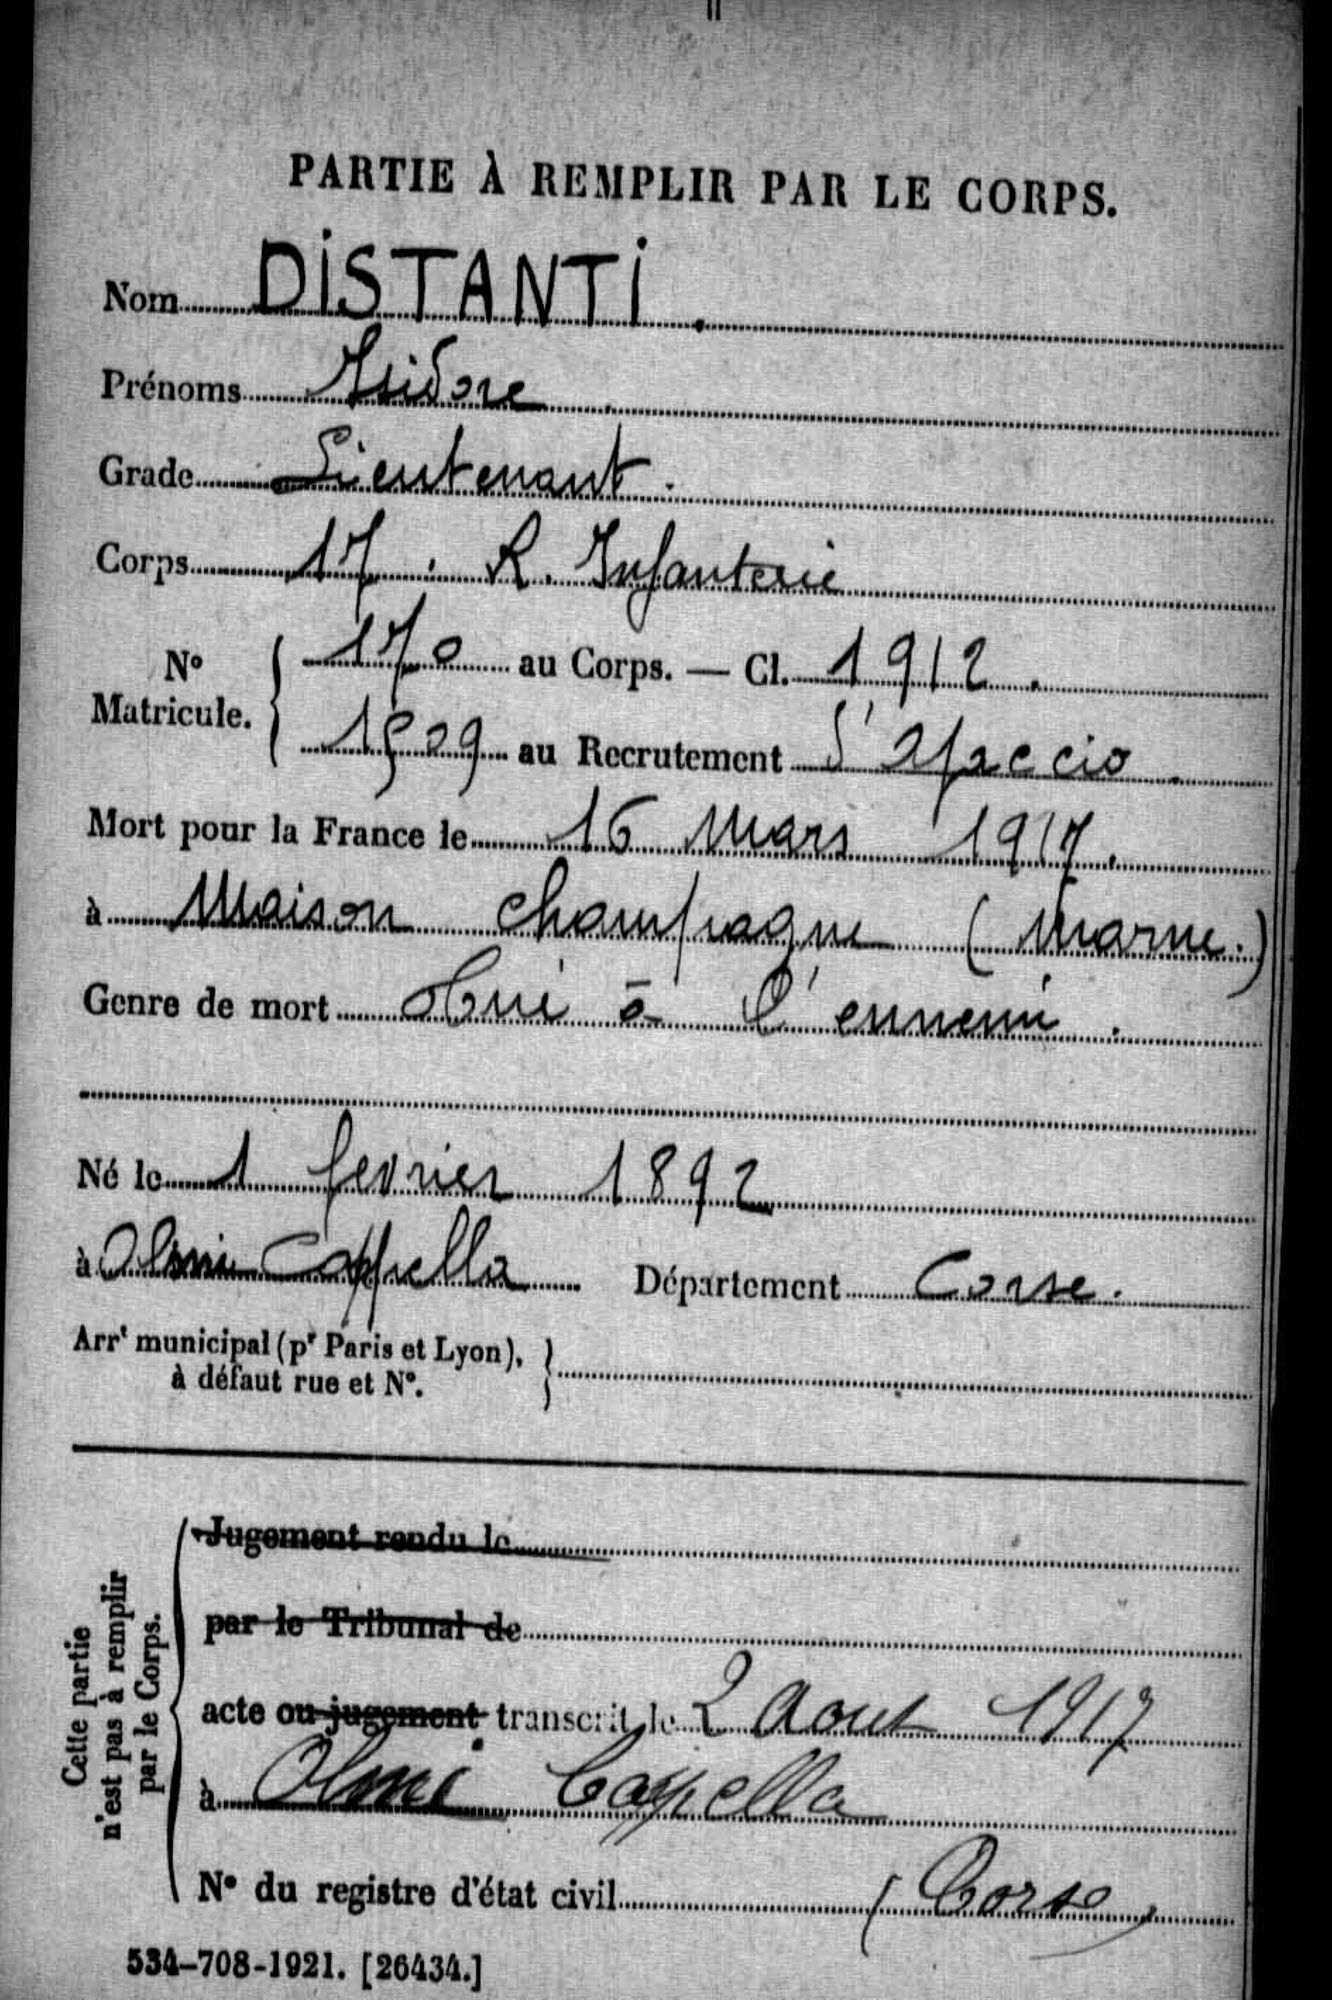 PARTIE À REMPLIR PAR LE CORPS.
Nom DISTANTI.
Prénoms Isidore
Grade Lieutenant.
Corps 17. R. Infanterie
N° Matricule. 170 au Corps. — Cl. 1912.
1509 au Recrutement d'Ajaccio.
Mort pour la France le 16 Mars 1917.
à Maison Champagne (Marne.)
Genre de mort Tué à l'ennemi.
Né le 1 fevrier 1892
à Olmi Cappella Département Corse.
Arrt municipal (pr Paris et Lyon),
à défaut rue et N°.
Cette partie
n'est pas à remplir
par le Corps.
Jugement rendu le
par le Tribunal de
acte ou jugement transcrit le 2 Aout 1917
à Olmi Cappella
N° du registre d'état civil (Corse)
534-708-1921. [26434.]